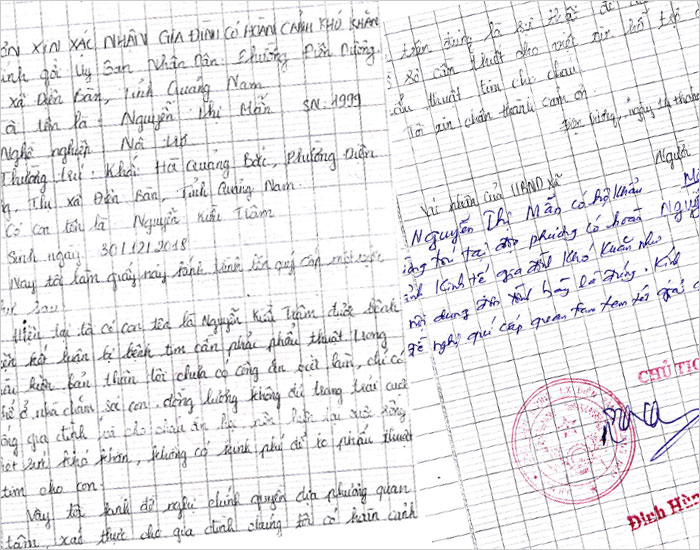 ƠN XIN XÁC NHẬN GIA ĐÌNH CÓ HOÀN CẢNH KHÓ KHĂN
ính gởi Uỷ Ban Nhân Dân Phường Điện Dương,
xã Điện Bàn, Tỉnh Quảng Nam
tên là: Nguyễn Thị Mẫn SN: 1999
Nghề nghiệp Nội trợ
Thường trú: Khối Hà Quảng Bắc, Phường Điện
Thị xã Điện Bàn, Tỉnh Quảng Nam.
Có con tên là Nguyễn Kiều Trâm
Sinh ngày 30/12/2018
Nay tôi làm giấy này kính trình lên quý cấp một việc
như sau:
Hiện tại tôi có con tên là Nguyễn Kiều Trâm được bệnh
viện kết luận bị bệnh tim cần phải phẩu thuật trong
bản thân tôi chưa có công ăn việc làm, chỉ có
ở nhà chăm sóc con. đồng lương không đủ trang trải cuộc
gia đình
khó khăn, không có kinh phí để lo phẩu thuật
tim cho con.
Vậy tôi kính đề nghị chính quyền địa phương quan
tâm, xác thực cho gia đình chúng tôi có hoàn cảnh
trên đúng là sự thật
thuật cho mời xin hỗ trợ
phẩu thuật tim cho cháu.
Tôi xin chân thành cảm ơn.
Điện Dương, ngày 14 tháng
Người
Xác nhận của UBND xã
Nguyễn Thị Mẫn có hộ khẩu
tại địa phương có hoàn
Kinh tế gia đình Khó Khăn như
nội dung đơn trình bày là đúng. Kính
đề nghị quí cấp quan tâm
CHỦ TỊC
Đinh Hùn